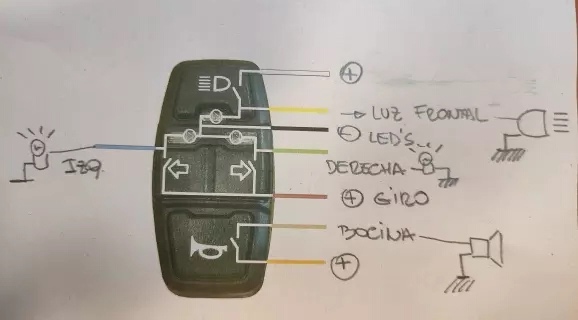 +
LUZ FRONTAL
- LED'S
IZQ.
DERECHA
+ GIRO
BOCINA
+